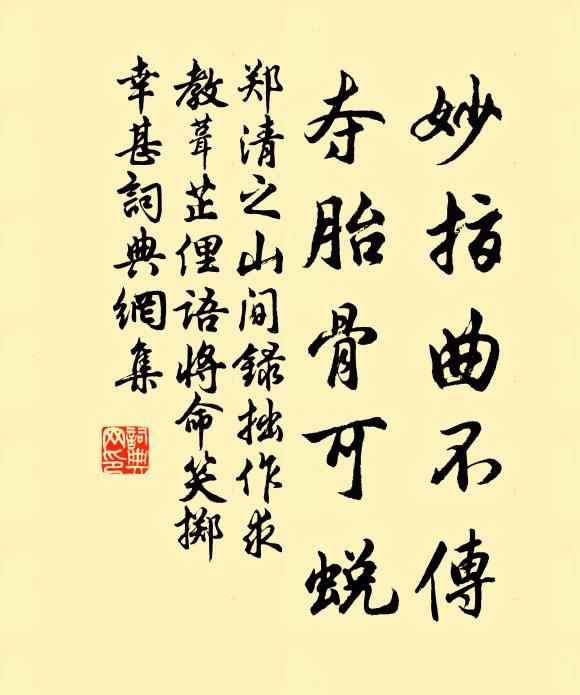 妙指曲不傳
夺胎骨可蜕
郑清之山间録拙作求
教葺芷俚语将命笑掷
幸甚詞典網集
詞典網印